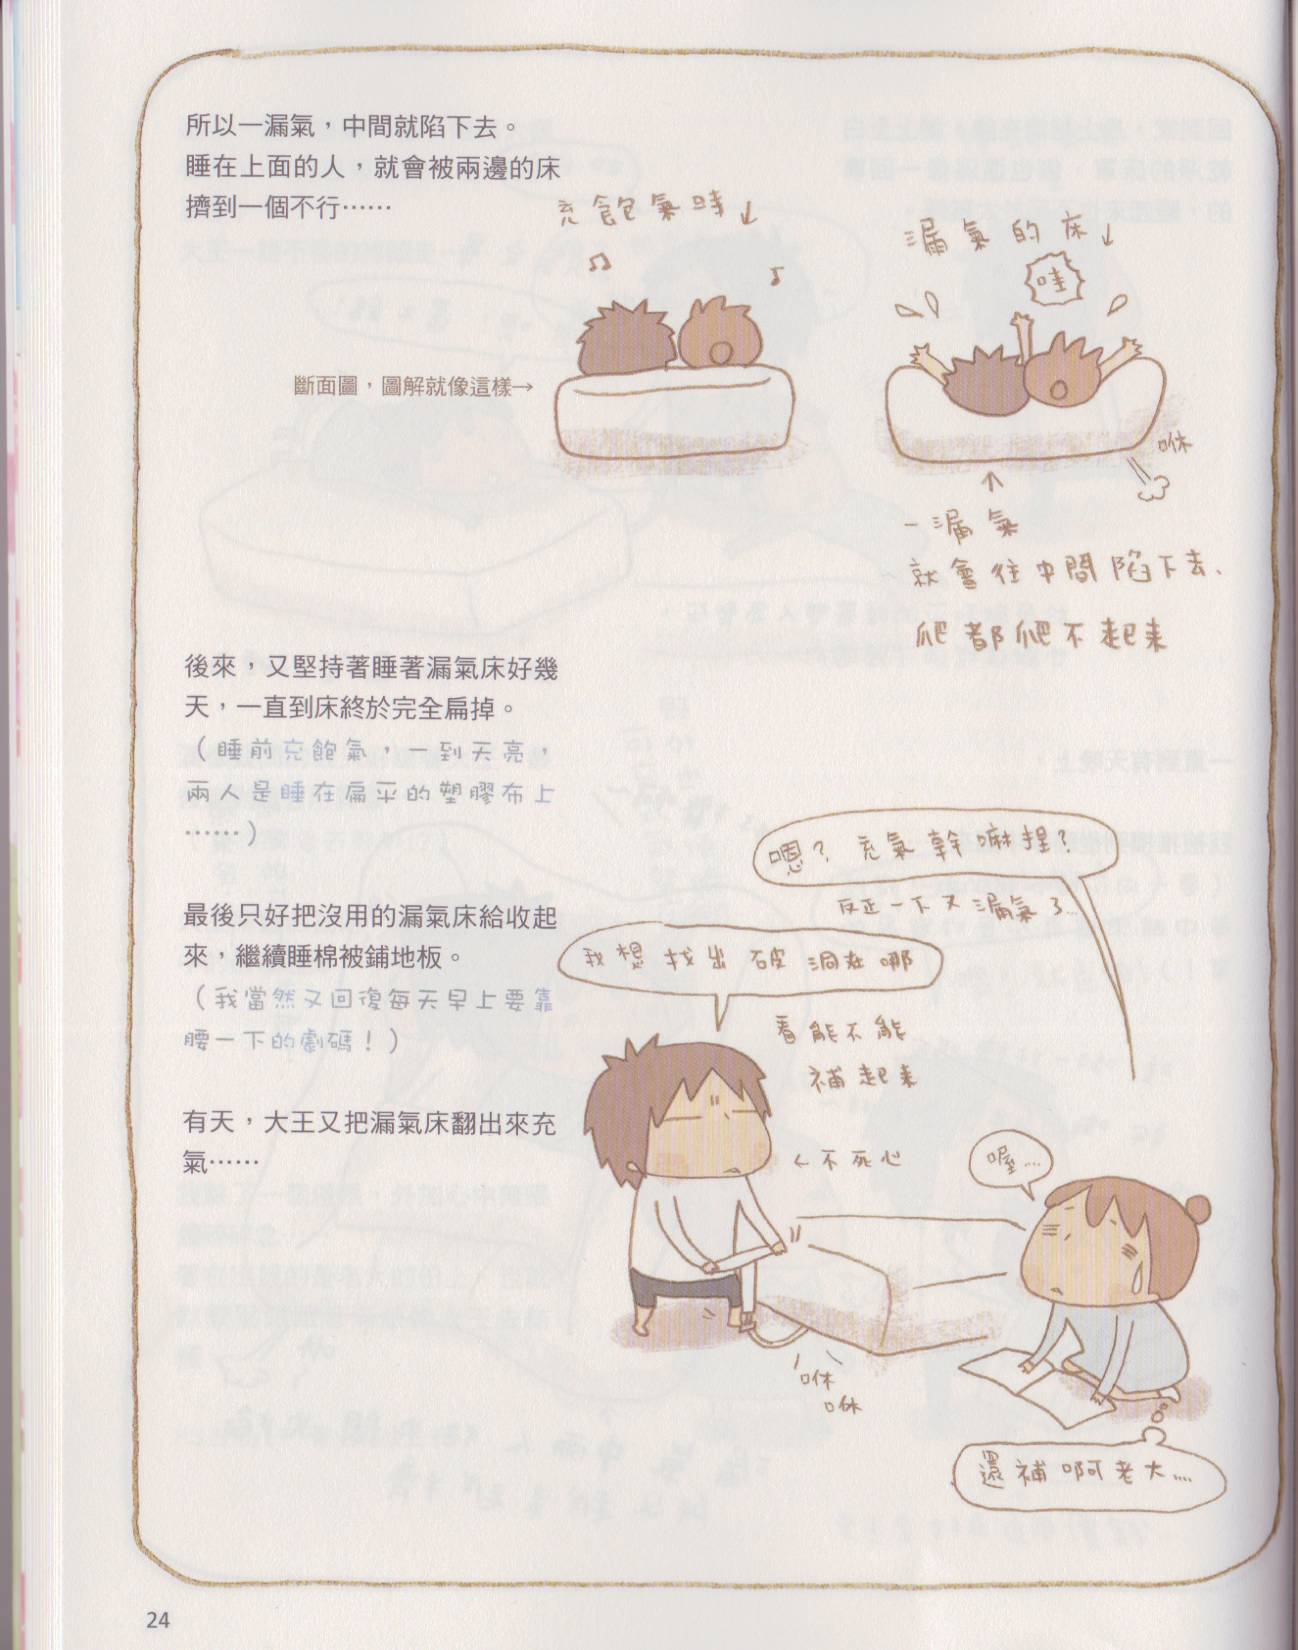 所以一漏氣，中間就陷下去。
睡在上面的人，就會被兩邊的床
擠到一個不行……
充飽氣時↓
漏氣的床↓
哇
斷面圖，圖解就像這樣→
咻
↑
一漏氣
就會往中間陷下去、
爬都爬不起來
後來，又堅持著睡著漏氣床好幾
天，一直到床終於完全扁掉。
（睡前充飽氣，一到天亮，
兩人是睡在扁平的塑膠布上
……）
嗯？充氣幹嘛捏？
反正一下又漏氣了…
最後只好把沒用的漏氣床給收起
來，繼續睡棉被鋪地板。
（我當然又回復每天早上要靠
腰一下的劇碼！）
我想找出破洞在哪
看能不能
補起來
有天，大王又把漏氣床翻出來充
氣……
←不死心
喔…
咻
咻
還補啊老大…
24